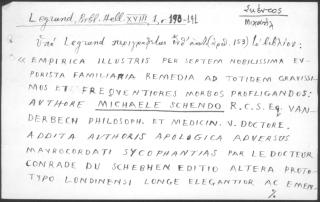 Σκένδος
Μιχαήλ
Legrand, Bibl. Hell. XVIII, 1, σ 190-191
Ὑπὸ Legrand περιγράφεται (ἀριθ. 159) βιβλίον:
« EMPIRICA ILLUSTRIS PER SEPTEM NOBILISSIMA EV-
PORISTA FAMILIARIA REMEDIA AD TOTIDEM GRAVISSI-
MOS ET FREQVENTIORES MORBOS PROFLIGANDOS:
AVTHORE MICHAELE SCHENDO R.C.S. Eq. VAN-
DERBECH PHILOSOPH. ET MEDICIN. V. DOCTORE.
ADDITA AUTHORIS APOLOGICA ADVERSUS
MAVROCORDATI SYCOPHANTIAS PAR LE DOCTEUR
CONRADE DU SCHEBHEN EDITIO ALTERA PROTO-
TYPO LONDINENSI LONGE ELEGANTIOR AC EMEN-
%